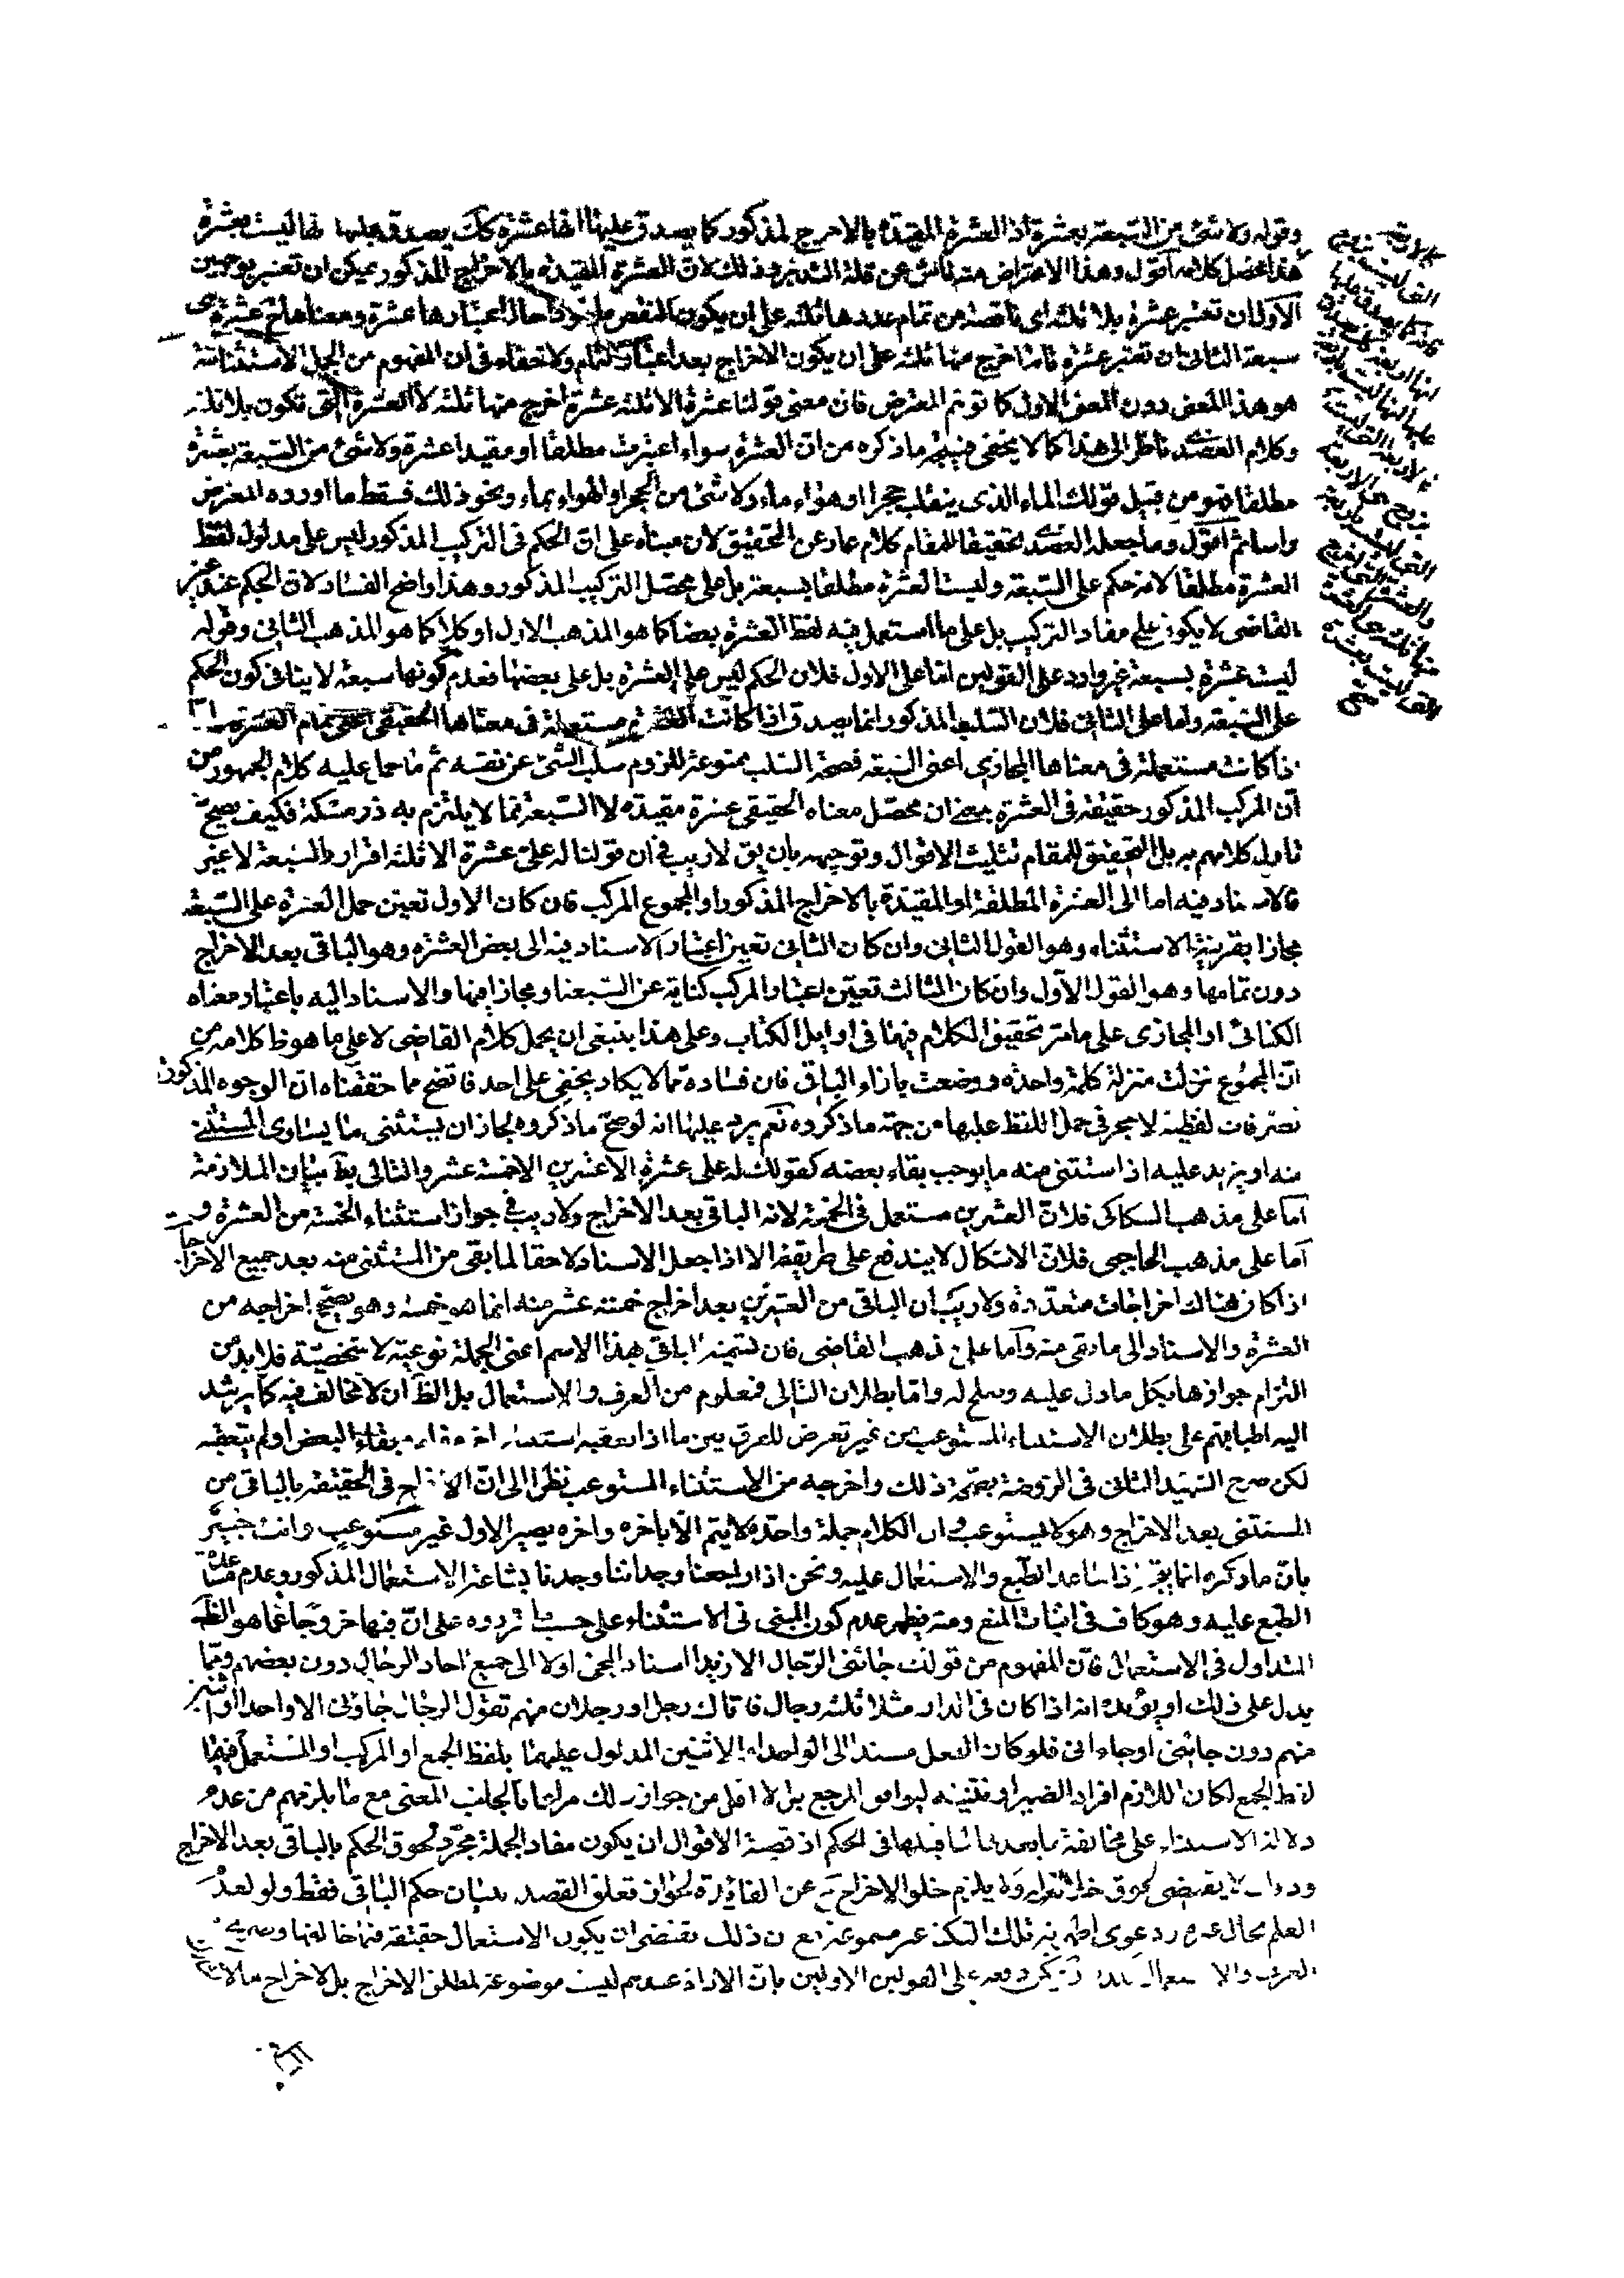 وقوله ولا شئ من السبعة بعشرة اذ العشرة المقيدة بالاخرج المذكور كما يصدق عليها انها عشرة كك يصدق عليها انها ليست بعشرة
هذا محصل كلامه اقول وهذا الاعتراض منه ناش عن قلة التدبر وذلك لان العشرة المقيدة بالاخراج المذكور يمكن ان تعتبر بوجهين
الاول ان تعتبر عشرة بلا ثلثة اى ناقصة من تمام عددها ثلثة على ان يكون النقص ماخوذا حال اعتبارها عشرة ومعناها ح عشرة هى
سبعة الثانى ان تعتبر عشرة تامة اخرج منها ثلثة على ان يكون الاخراج بعد اعتبار التمام ولا خفاء فى ان المفهوم من الجمل الاستثنائية
هو هذا المعنى دون المعنى الاول كما توهم المعترض فان معنى قولنا عشرة الا ثلثة عشرة اخرج منها ثلثة لا العشرة التى تكون بلا ثلثة
وكلام العضدى ناظر الى هذا كما لا يخفى فيتجه ما ذكره من ان العشرة سواء اعتبرت مطلقا او مقيدا عشرة ولا شئ من السبعة بعشرة
مطلقا فهو من قبيل قولك الماء الذى ينقلب حجرا او هواء ماء ولا شئ من الحجر او الهواء بماء ونحو ذلك فسقط ما اورده المعترض
واساثم اقول وما جعله العضدى تحقيقا للمقام كلام عار عن التحقيق لان مبناه على ان الحكم فى التركيب المذكور ليس على مدلول لفظ
العشرة مطلقا لانه حكم على السبعة وليست العشرة مطلقا بسبعة بل على محصل التركيب المذكور وهذا واضح الفساد لان الحكم عند غير
القاضى لا يكون على مفاد التركيب بل على ما استعمل فيه لفظ العشرة بعضا كما هو المذهب الاول او كلا كما هو المذهب الثانى وقوله
ليست عشرة بسبعة غير وارد على القولين اما على الاول فلان الحكم ليس على العشرة بل على بعضها فعدم كونها سبعة لا ينافى كون الحكم
على السبعة واما على الثانى فلان السلب المذكور انما يصدق اذا كانت العشرة مستعملة فى معناها الحقيقى اعنى تمام العشرة واما
اذا كانت مستعملة فى معناها المجازى اعنى السبعة فصحة السلب ممنوعة للزوم سلب الشئ عن نفسه ثم ما حمل عليه كلام الجمهور من
ان المركب المذكور حقيقة فى العشرة بمعنى ان محصل معناه الحقيقى عشرة مقيدة لا السبعة مما لا يلتزم به ذو مسكة فكيف يصح
تاويل كلامهم به بل التحقيق للمقام تثليث الاقوال وتوجيهه بان يق لا ريب فى ان قولنا له على عشرة الا ثلثة اقرار بالسبعة لا غير
فالاسناد فيه اما الى العشرة المطلقة او المقيدة بالاخراج المذكور او المجموع المركب فان كان الاول تعين حمل العشرة على السبعة
مجازا بقرينة الاستثناء وهو القول الثانى وان كان الثانى تعين اعتبار الاسناد فيه الى بعض العشرة وهو الباقى بعد الاخراج
دون تمامها وهو القول الاول وان كان الثالث تعين اعتبار المركب كناية عن السبعة او مجازا فيها والاسناد اليه باعتبار معناه
الكنائى او المجازى على ما مر تحقيق الكلام فيهما فى اوايل الكتاب وعلى هذا ينبغى ان يحمل كلام القاضى لا على ما هو ظ كلامه من
ان المجموع نزلت منزلة كلمة واحدة ووضعت بازاء الباقى فان فساده مما لا يكاد يخفى على احد فاتضح مما حققناه ان الوجوه المذكورة
تصرفات لفظية لا حجر فى حمل اللفظ عليها من جهة ما ذكروه نعم يرد عليها انه لو صح ما ذكروه لجاز ان يستثنى ما يساوى المستثنى
منه او يزيد عليه اذا استثنى منه ما يوجب بقاء بعضه كقولك له على عشرة الا عشرين الا خمسة عشر والتالى بط بيان الملازمة
اما على مذهب السكاكى فلان العشرين مستعمل فى الخمسة لانه الباقى بعد الاخراج ولا ريب فى جواز استثناء الخمسة من العشرة و
اما على مذهب الحاجبى فلان الاشكال لا يندفع على طريقته الا اذا جعل الاسناد لاحقا لما بقى من المستثنى منه بعد جميع الاخراجات
اذا كان هناك اخراجات متعددة ولا ريب ان الباقى من العشرين بعد اخراج خمسة عشر منه انما هو خمسة وهو يصح اخراجه من
العشرة والاسناد الى ما بقى منه واما على مذهب القاضى فان تسمية الباقى بهذا الاسم اعنى الجملة نوعية لا شخصية فلا بد من
التزام جوازها بكل ما دل عليه وصلح له واما بطلان التالى فمعلوم من العرف والاستعمال بل الظ ان لا مخالف فيه كما يرشد
اليه اطباقهم على بطلان الاستثناء المستوعب من غير تعرض للفرق بين ما اذا تعقبه استثناء اخر بقاء البعض او لم يتعقبه
لكن صرح الشهيد الثانى فى الروضة بصحة ذلك واخرجه من الاستثناء المستوعب نظرا الى ان الاخراج فى الحقيقة بالباقى من
المستثنى بعد الاخراج وهو لا يستوعب وان الكلام جملة واحدة لا يتم الا باخره واخره يصير الاول غير مستوعب وانت خبير
بان ما ذكره انما يتم اذا ساعد الطبع والاستعمال عليه ونحن اذا راجعنا وجداننا وجدنا بشاعة الاستعمال المذكور وعدم مساعدة
الطبع عليه وهو كاف فى اثبات المنع ومنه يظهر عدم كون المبنى فى الاستثناء على حسب ما قرروه على ان فيها خروجا عما هو الظ
المتداول فى الاستعمال فان المفهوم من قولك جائنى الرجال الا زيدا اسناد المجئ اولا الى جميع احاد الرجال دون بعضهم ومما
يدل على ذلك او يؤيده انه اذا كان فى الدار مثلا ثلثة رجال فاتاك رجل او رجلان منهم تقول الرجال جاؤنى الا واحدا او اثنين
منهم دون جائنى او جاءانى فلو كان الفعل مسندا الى الواحد او الاثنين المدلول عليهما بلفظ الجمع او المركب او المستعمل فيهما
لفظ الجمع لكان اللازم افراد الضمير او تثنيته ليوافق المرجع بل لا اقل من جواز ذلك مراعاة لجانب المعنى مع ما يلزمهم من عدم
دلالة الاستثناء على مخالفة ما بعدها لما قبلها فى الحكم اذ قضية الاقوال ان يكون مفاد الجملة مجرد لحوق الحكم بالباقى بعد الاخراج
وذلك لا يقتضى لحوق خلافه ولا يلزم خلو الاخراج ح عن الفائدة لجواز تعلق القصد ببيان حكم الباقى فقط ولو لعدم
العلم بحال غيره ودعوى تلك النكتة غير مسموعة نعم ذلك يقتضى ان يكون الاستعمال حقيقة فيما خالفها
العرف والاستعمال يمكن دفعه على القولين الاولين بان الاداة عندهم ليست موضوعة لمطلق الاخراج بل لاخراج ما لا